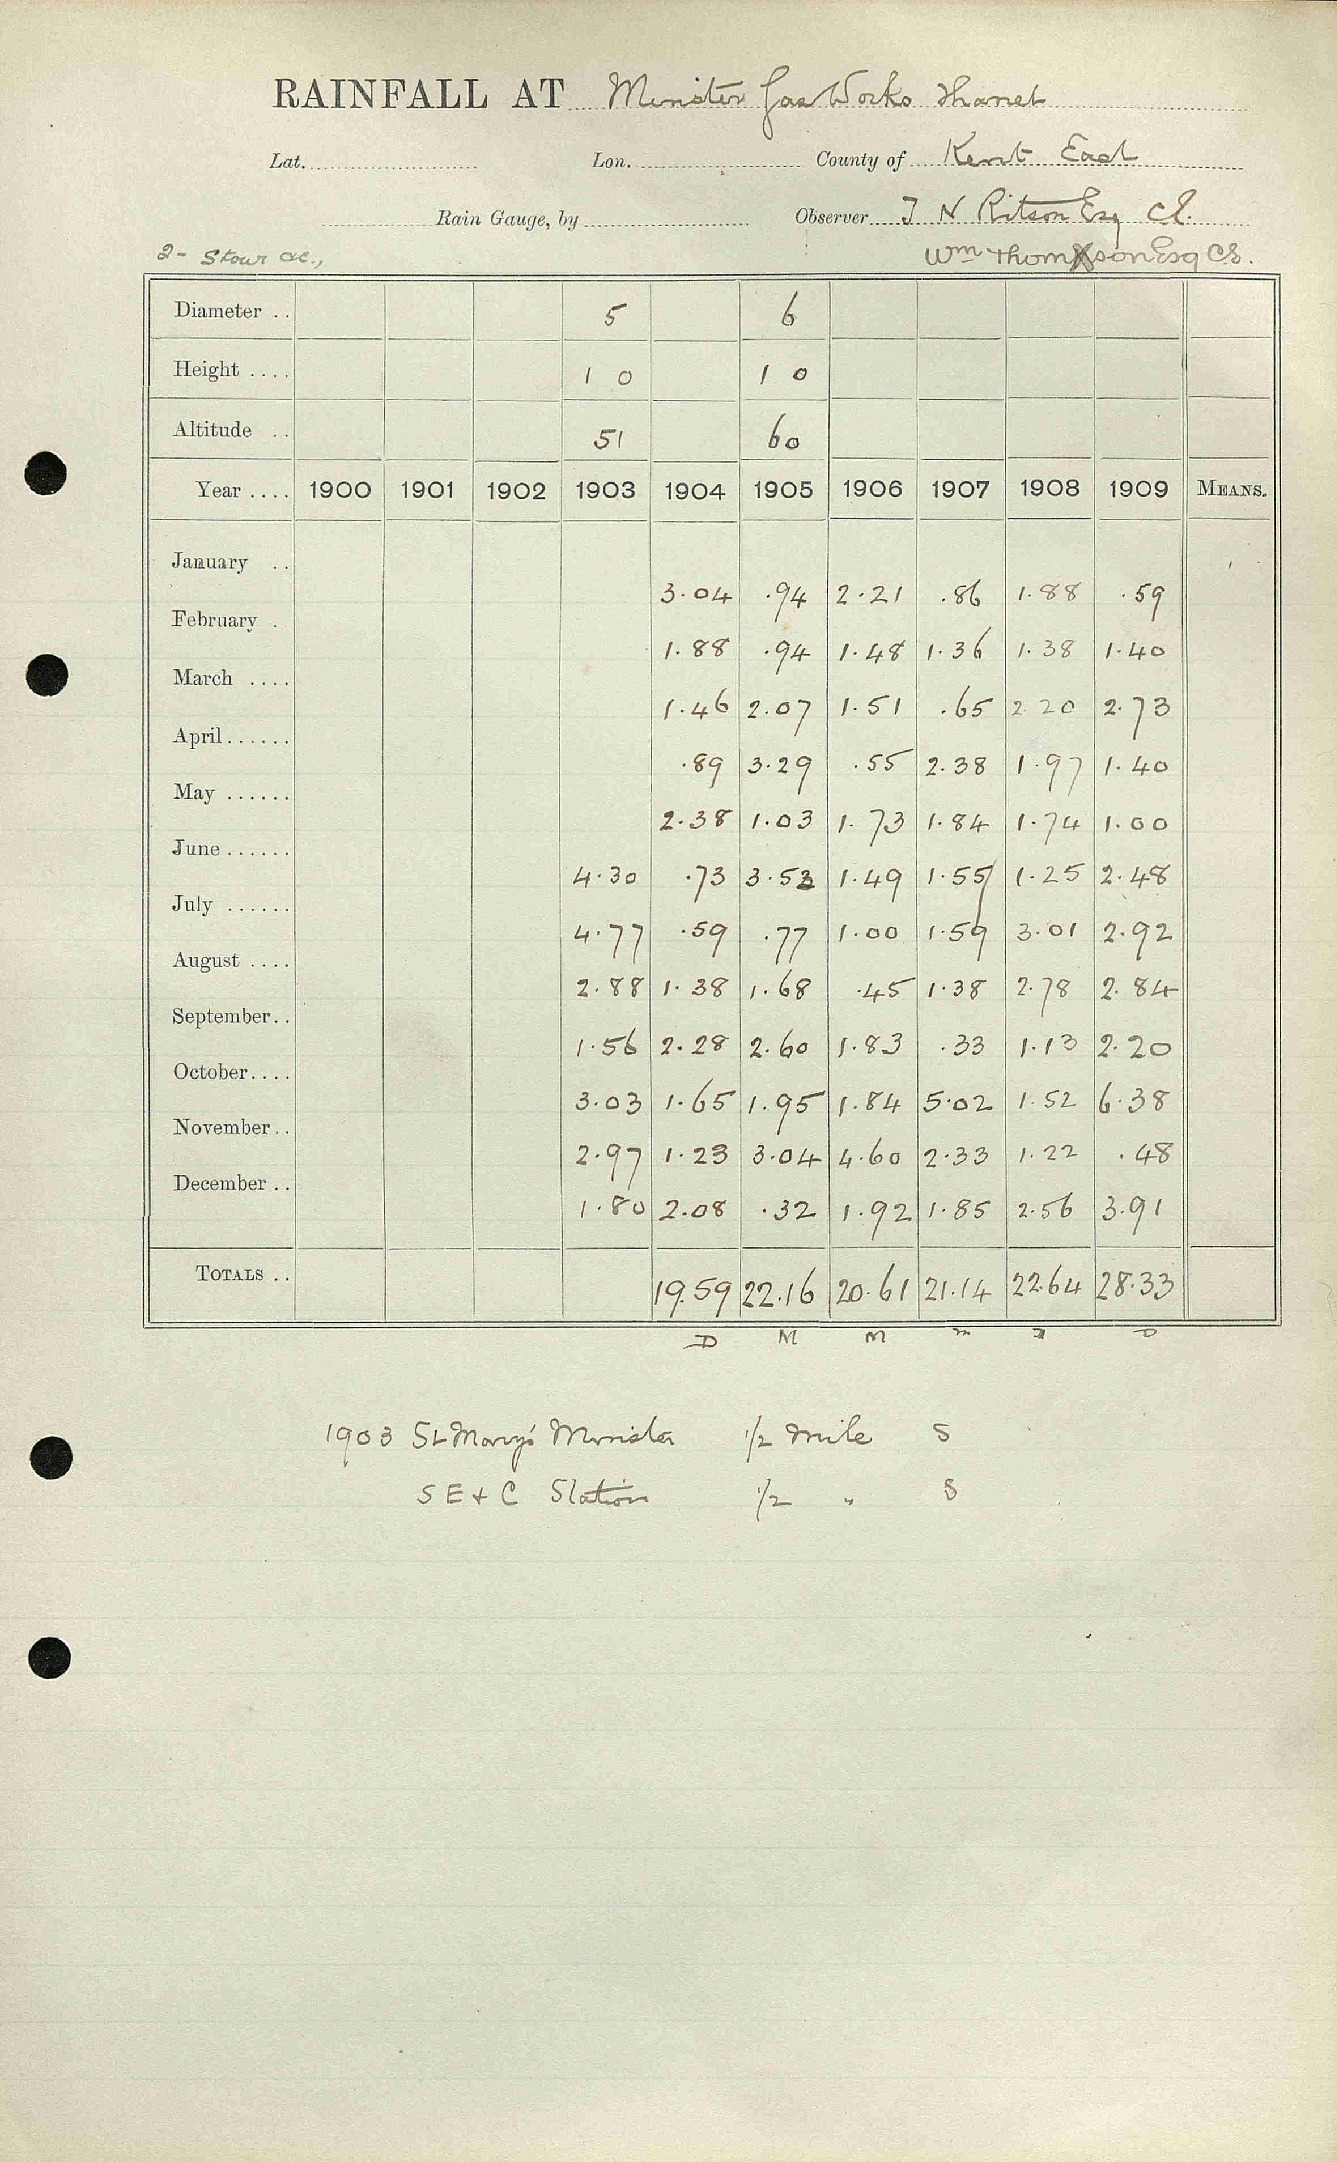 RAINFALL AT Minster Gas Works Thanet
Lat. Lon. County of Kent East
Rain Gauge, by Observer J N Ritson Esq CE.
2 - Stour &c., Wm Thomson Esq C.E.
Diameter .. 5 6
Height .... 1 0 1 0
Altitude .. 51 60
Year .... 1900 1901 1902 1903 1904 1905 1906 1907 1908 1909 MEANS.
January .. 3.04 .94 2.21 .86 1.88 .59
February . 1.88 .94 1.48 1.36 1.38 1.40
March .... 1.46 2.07 1.51 .65 2.20 2.73
April ...... .89 3.29 .55 2.38 1.97 1.40
May ...... 2.38 1.03 1.73 1.84 1.74 1.00
June ...... 4.30 .73 3.53 1.49 1.55 1.25 2.48
July ...... 4.77 .59 .77 1.00 1.59 3.01 2.92
August .... 2.88 1.38 1.68 .45 1.38 2.78 2.84
September .. 1.56 2.28 2.60 1.83 .33 1.13 2.20
October .... 3.03 1.65 1.95 1.84 5.02 1.52 6.38
November .. 2.97 1.23 3.04 4.60 2.33 1.22 .48
December .. 1.80 2.08 .32 1.92 1.85 2.56 3.91
TOTALS .. 19.59 22.16 20.61 21.14 22.64 28.33
D M M
1903 St Mary's Minster 1/2 mile S
S E & C Station 1/2 " S